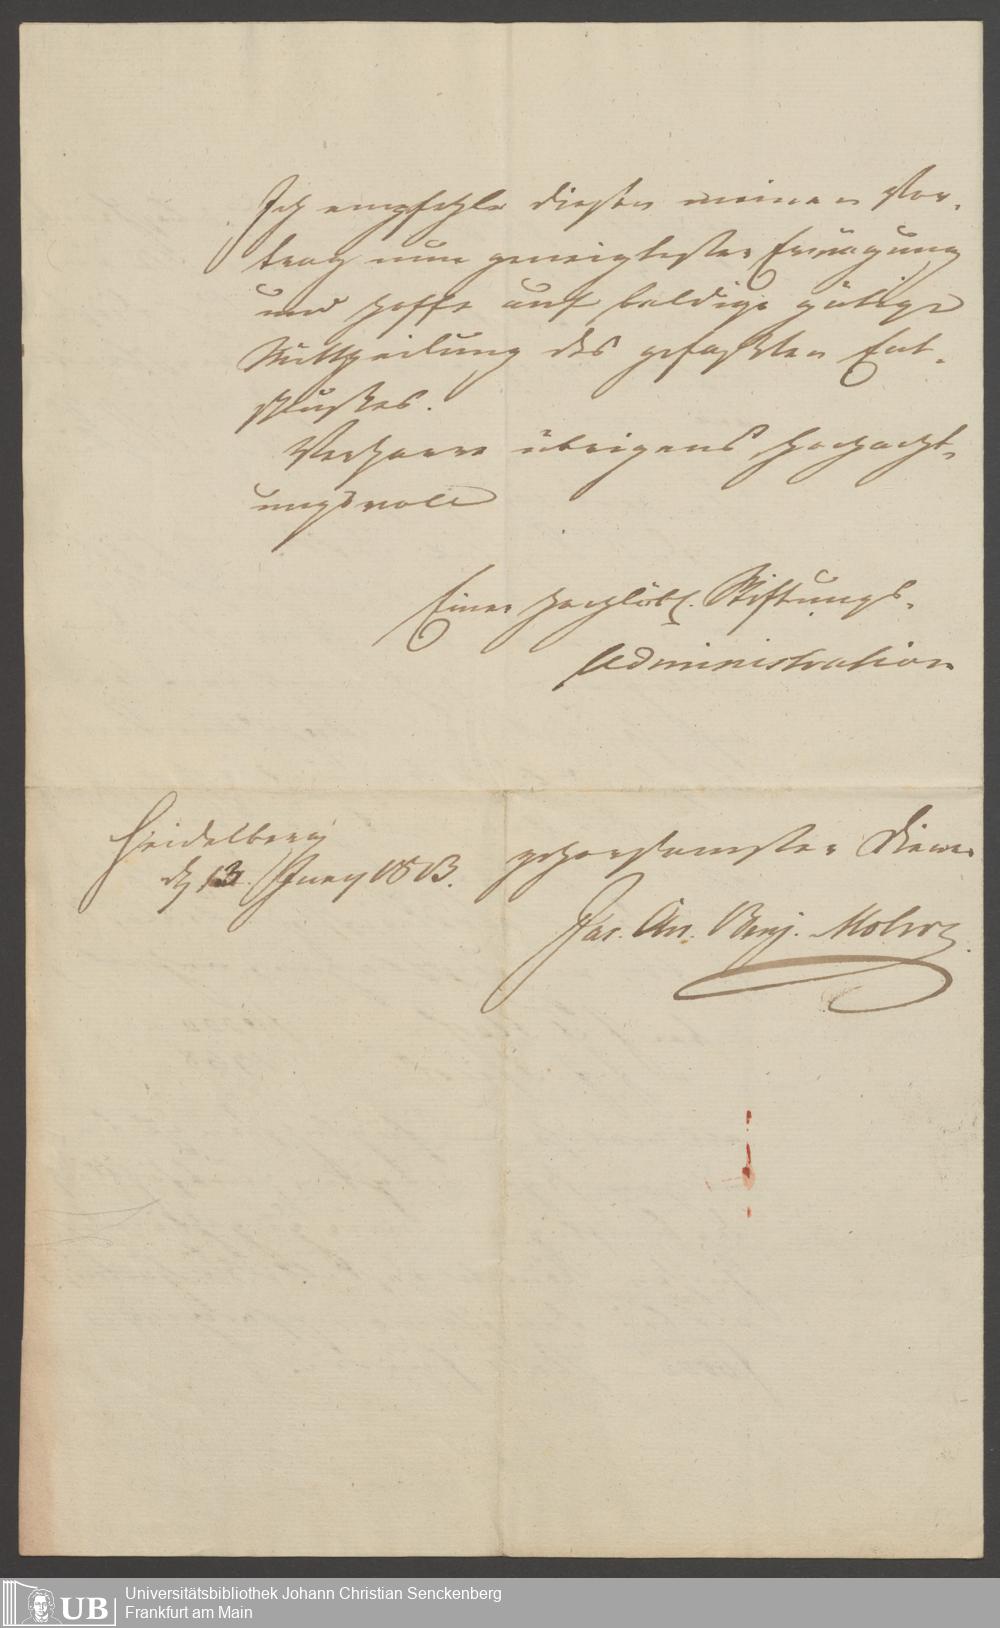 Ich empfehle diesen meinen Vor-
trag nun geneigtester Erwägung
und hoffe auf baldige gütige
Mittheilung des gefaßten Ent-
schlußes.
Verharre übrigens hochacht-
ungsvoll
Einer hochlöbl. Stiftungs-
Administration
Heidelberg
d 13. Juny 1813.
gehorsamster Diener
Jac. An. Benj.
UB
Universitätsbibliothek Johann Christian Senckenberg
Frankfurt am Main